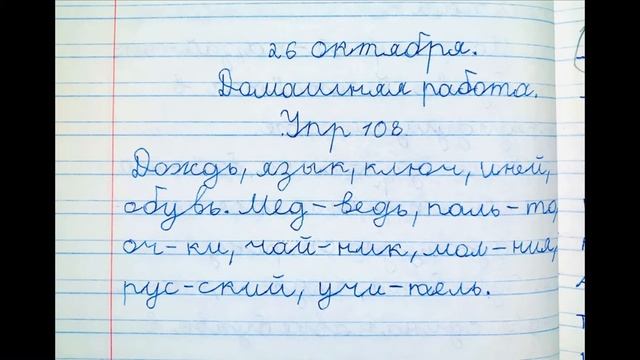 26 октября.
Домашняя работа.
Упр 108.
Дождь, язык, ключ, иней,
обувь. Мед-ведь, паль-то,
оч-ки, чай-ник, мол-ния,
рус-ский, учи-тель.